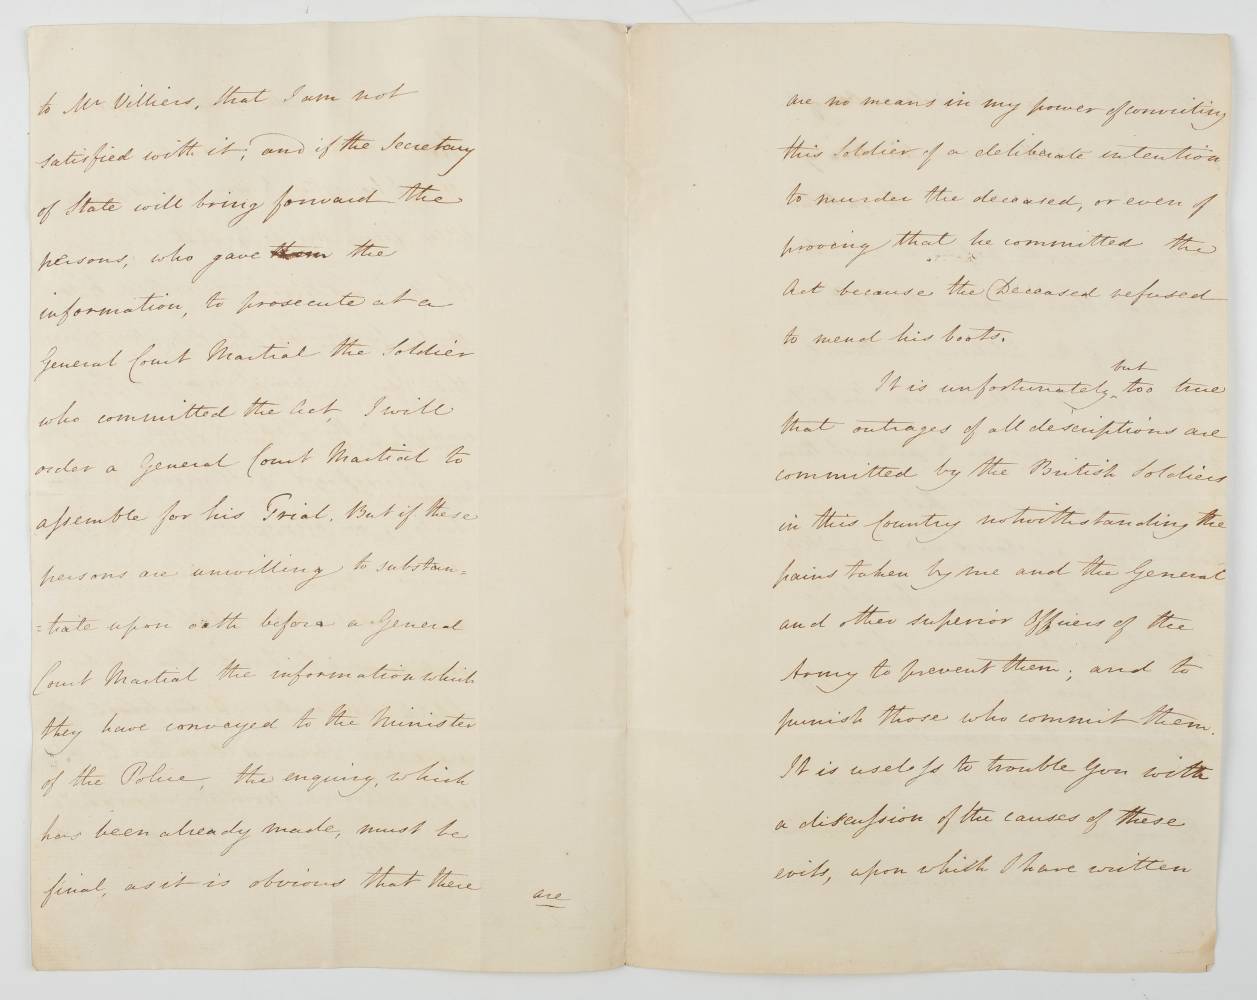 to Mr Villiers, that I am not
satisfied with it; and if the Secretary
of State will bring forward the
persons, who gave them the
information, to prosecute at a
General Court Martial the Soldier
who committed the Act, I will
order a General Court Martial to
assemble for his Trial. But if these
persons are unwilling to substan=
=tiate upon oath before a General
Court Martial the information which
they have conveyed to the Minister
of the Police, the enquiry, which
has been already made, must be
final, as it is obvious that there
are
are no means in my power of convicting
this Soldier of a deliberate intention
to murder the deceased, or even of
proving that he committed the
Act because the Deceased refused
to mend his boots.
but
It is unfortunately too true
that outrages of all descriptions are
committed by the British Soldiers
in this Country notwithstanding the
pains taken by me and the General
and other superior Officers of the
Army to prevent them; and to
punish those who commit them.
It is useless to trouble You with
a discussion of the causes of these
evils, upon which I have written